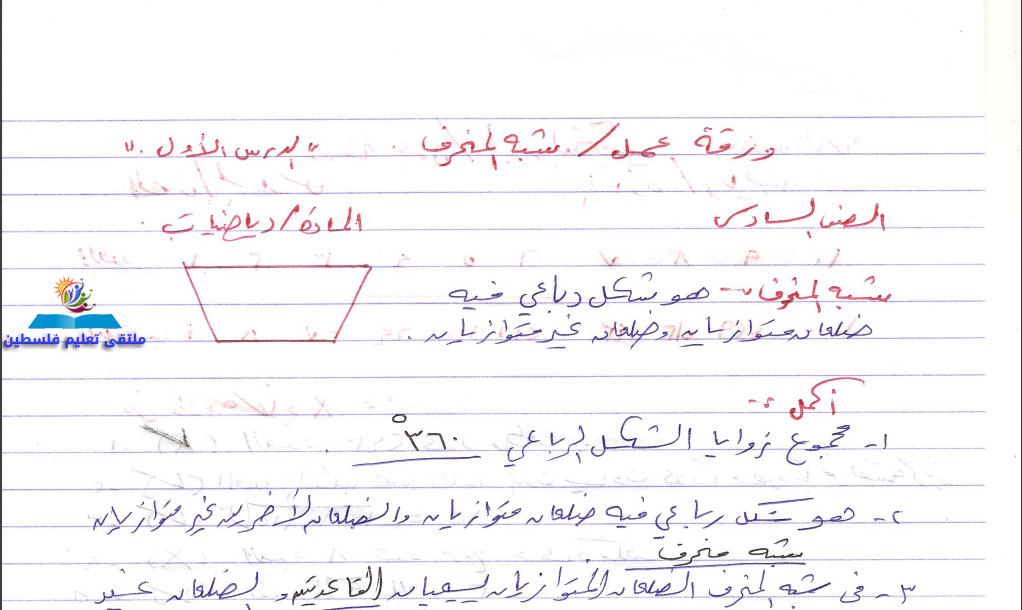 ورقة عمل / شبه المنحرف " الدرس الأول "
الصف السادس المادة / رياضيات
شبه المنحرف :- هو شكل رباعي فيه
ضلعان متوازيان وضلعان غير متوازيان .
ملتقى تعليم فلسطين
أكمل :-
١- مجموع زوايا الشكل الرباعي ٣٦٠°
٢- هو شكل رباعي فيه ضلعان متوازيان والضلعان الأخرين غير متوازيان
شبه منحرف .
٣- في شبه المنحرف الضلعان المتوازيان يسميان القاعدتين و الضلعان غير